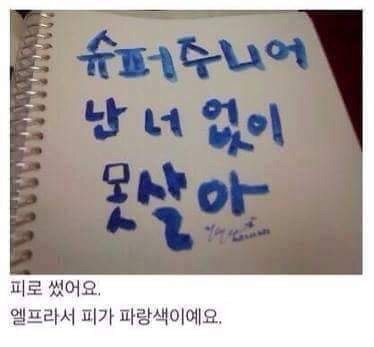 슈퍼주니어
난 너 없이
못살아
피로 썼어요.
엘프라서 피가 파랑색이예요.